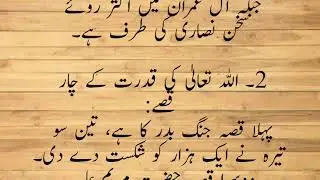 جبکہ آل عمران میں اکثر روئے
سخن نصاریٰ کی طرف ہے۔
2۔ اللہ تعالیٰ کی قدرت کے چار
قصے:
پہلا قصہ جنگ بدر کا ہے، تین سو
تیرہ نے ایک ہزار کو شکست دے دی۔